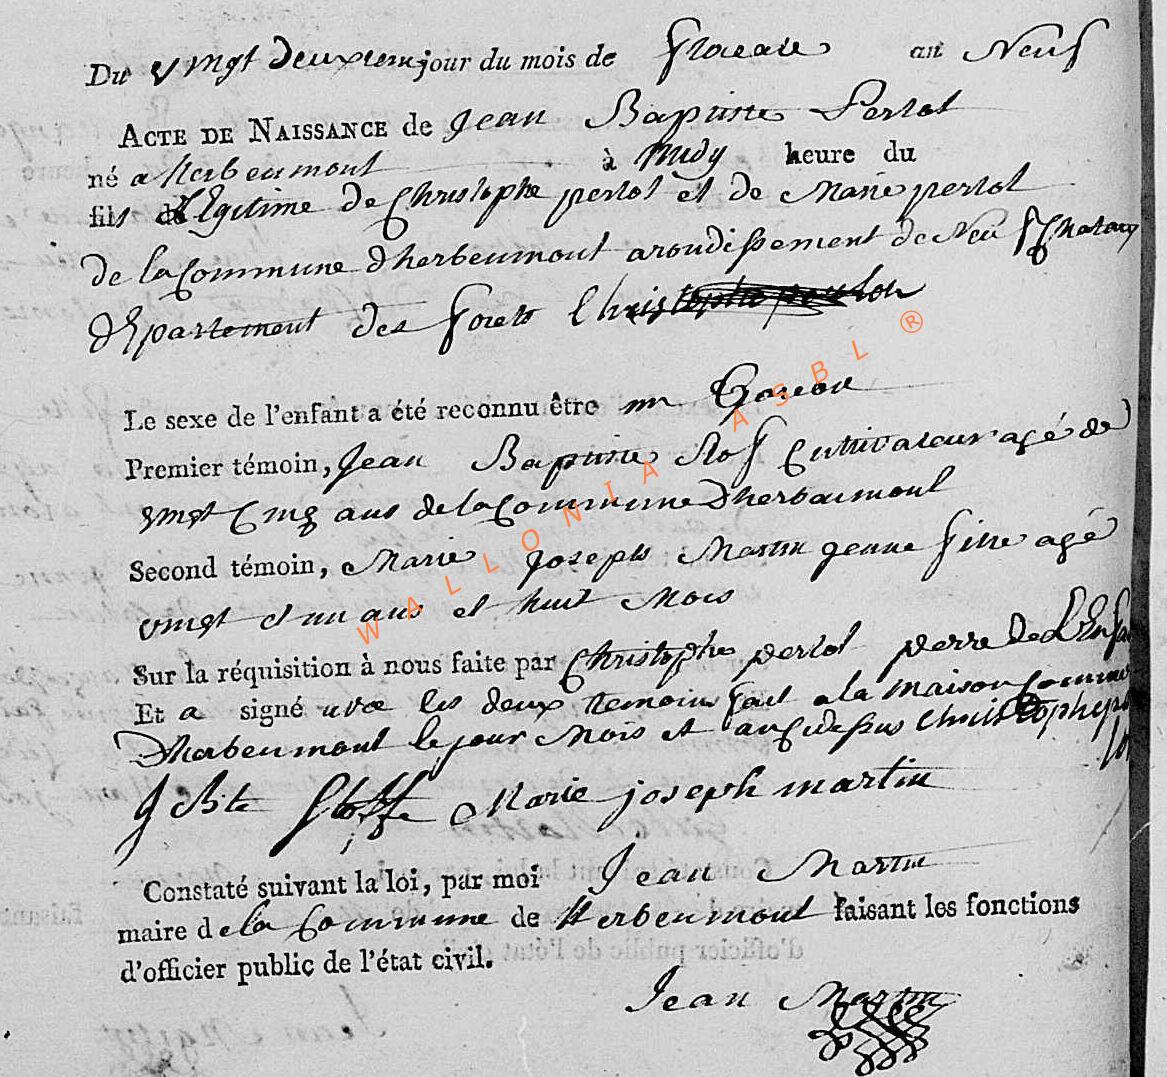 Du vingt deuxiem jour du mois de floreale an Neuf
ACTE DE NAISSANCE de Jean Baptiste Perlot
né a herbeumont à midy heure du
fils de Legitime de Christophe perlot et de Marie perlot
de la Commune dherbeumont arondissement de Neufchatau
departement des forets Christophe perlot
Le sexe de l'enfant a été reconnu être un Garcon
Premier témoin, Jean Baptiste Stof Cultivateur agé de
vingt Cinq ans de la Commune Dherbeumont
Second témoin, Marie Joseph Martin jeune fille agé
vingt et un ans et huit mois
Sur la réquisition à nous faite par Christophe perlot perre de L'Enfa
Et a signé avec les deux temoins fait a la maison Commune
Dherbeumont le jour mois et an cy dessus Christophe per
lot
J Bte Stoffe Marie joseph martin
Constaté suivant la loi, par moi Jean Martin
maire de la Commune de herbeumont faisant les fonctions
d'officier public de l'état civil.
Jean Martin
WALLONIA ASBL ®